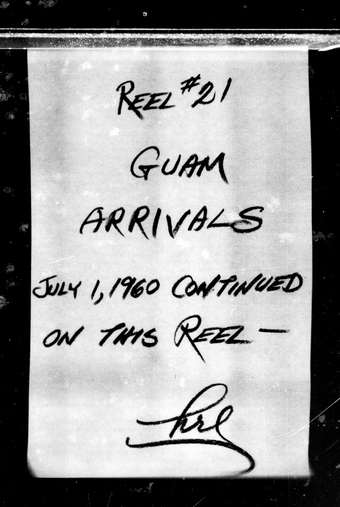 REEL #21
GUAM
ARRIVALS
JULY 1, 1960 CONTINUED
ON THIS REEL —